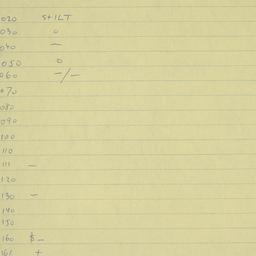 020 STILT
030 0
040 —
050 0
060 -/-
070
080
090
100
110
111 —
120
130 —
140
150
160 $ —
161 +